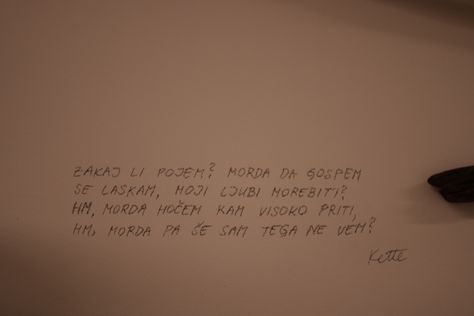 ZAKAJ LI POJEM? MORDA DA GOSPEM
SE LASKAM, MOJI LJUBI MOREBITI?
HM, MORDA HOČEM KAM VISOKO PRITI,
HM, MORDA PA ŠE SAM TEGA NE VEM?
Kette